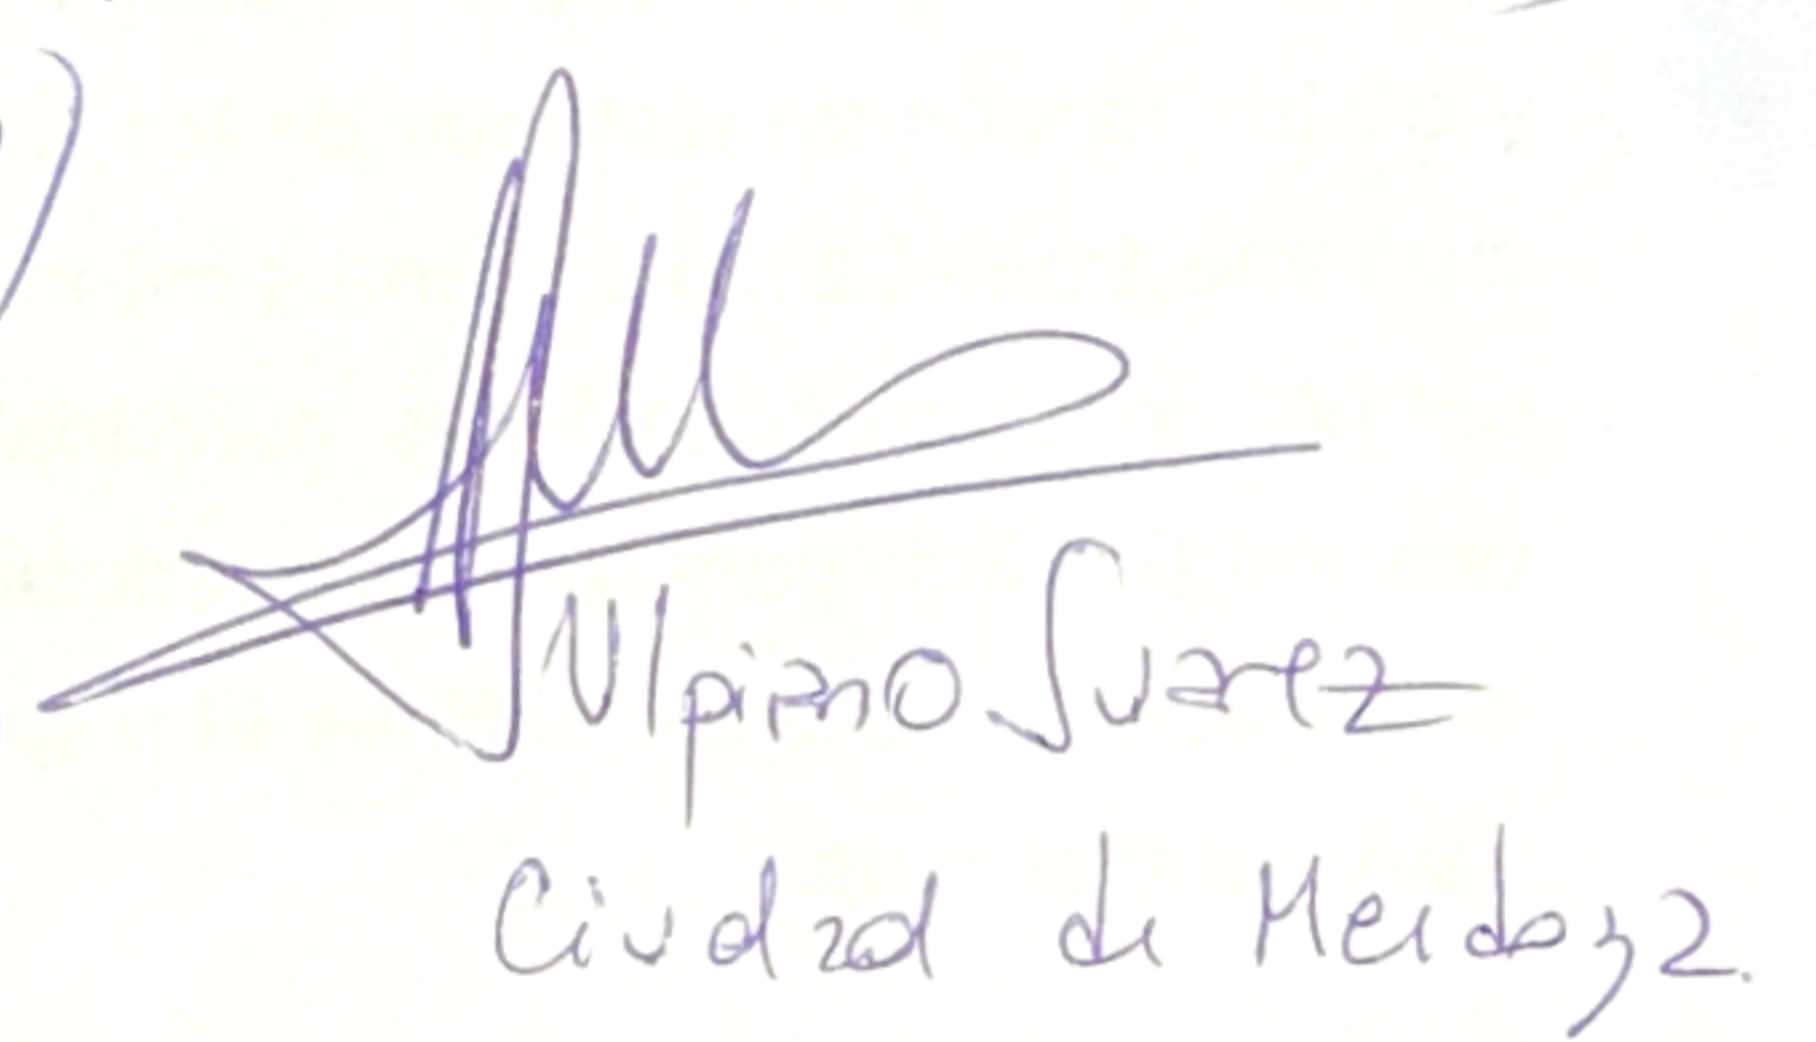 Ulpiano Suarez
Ciudad de Mendoza.